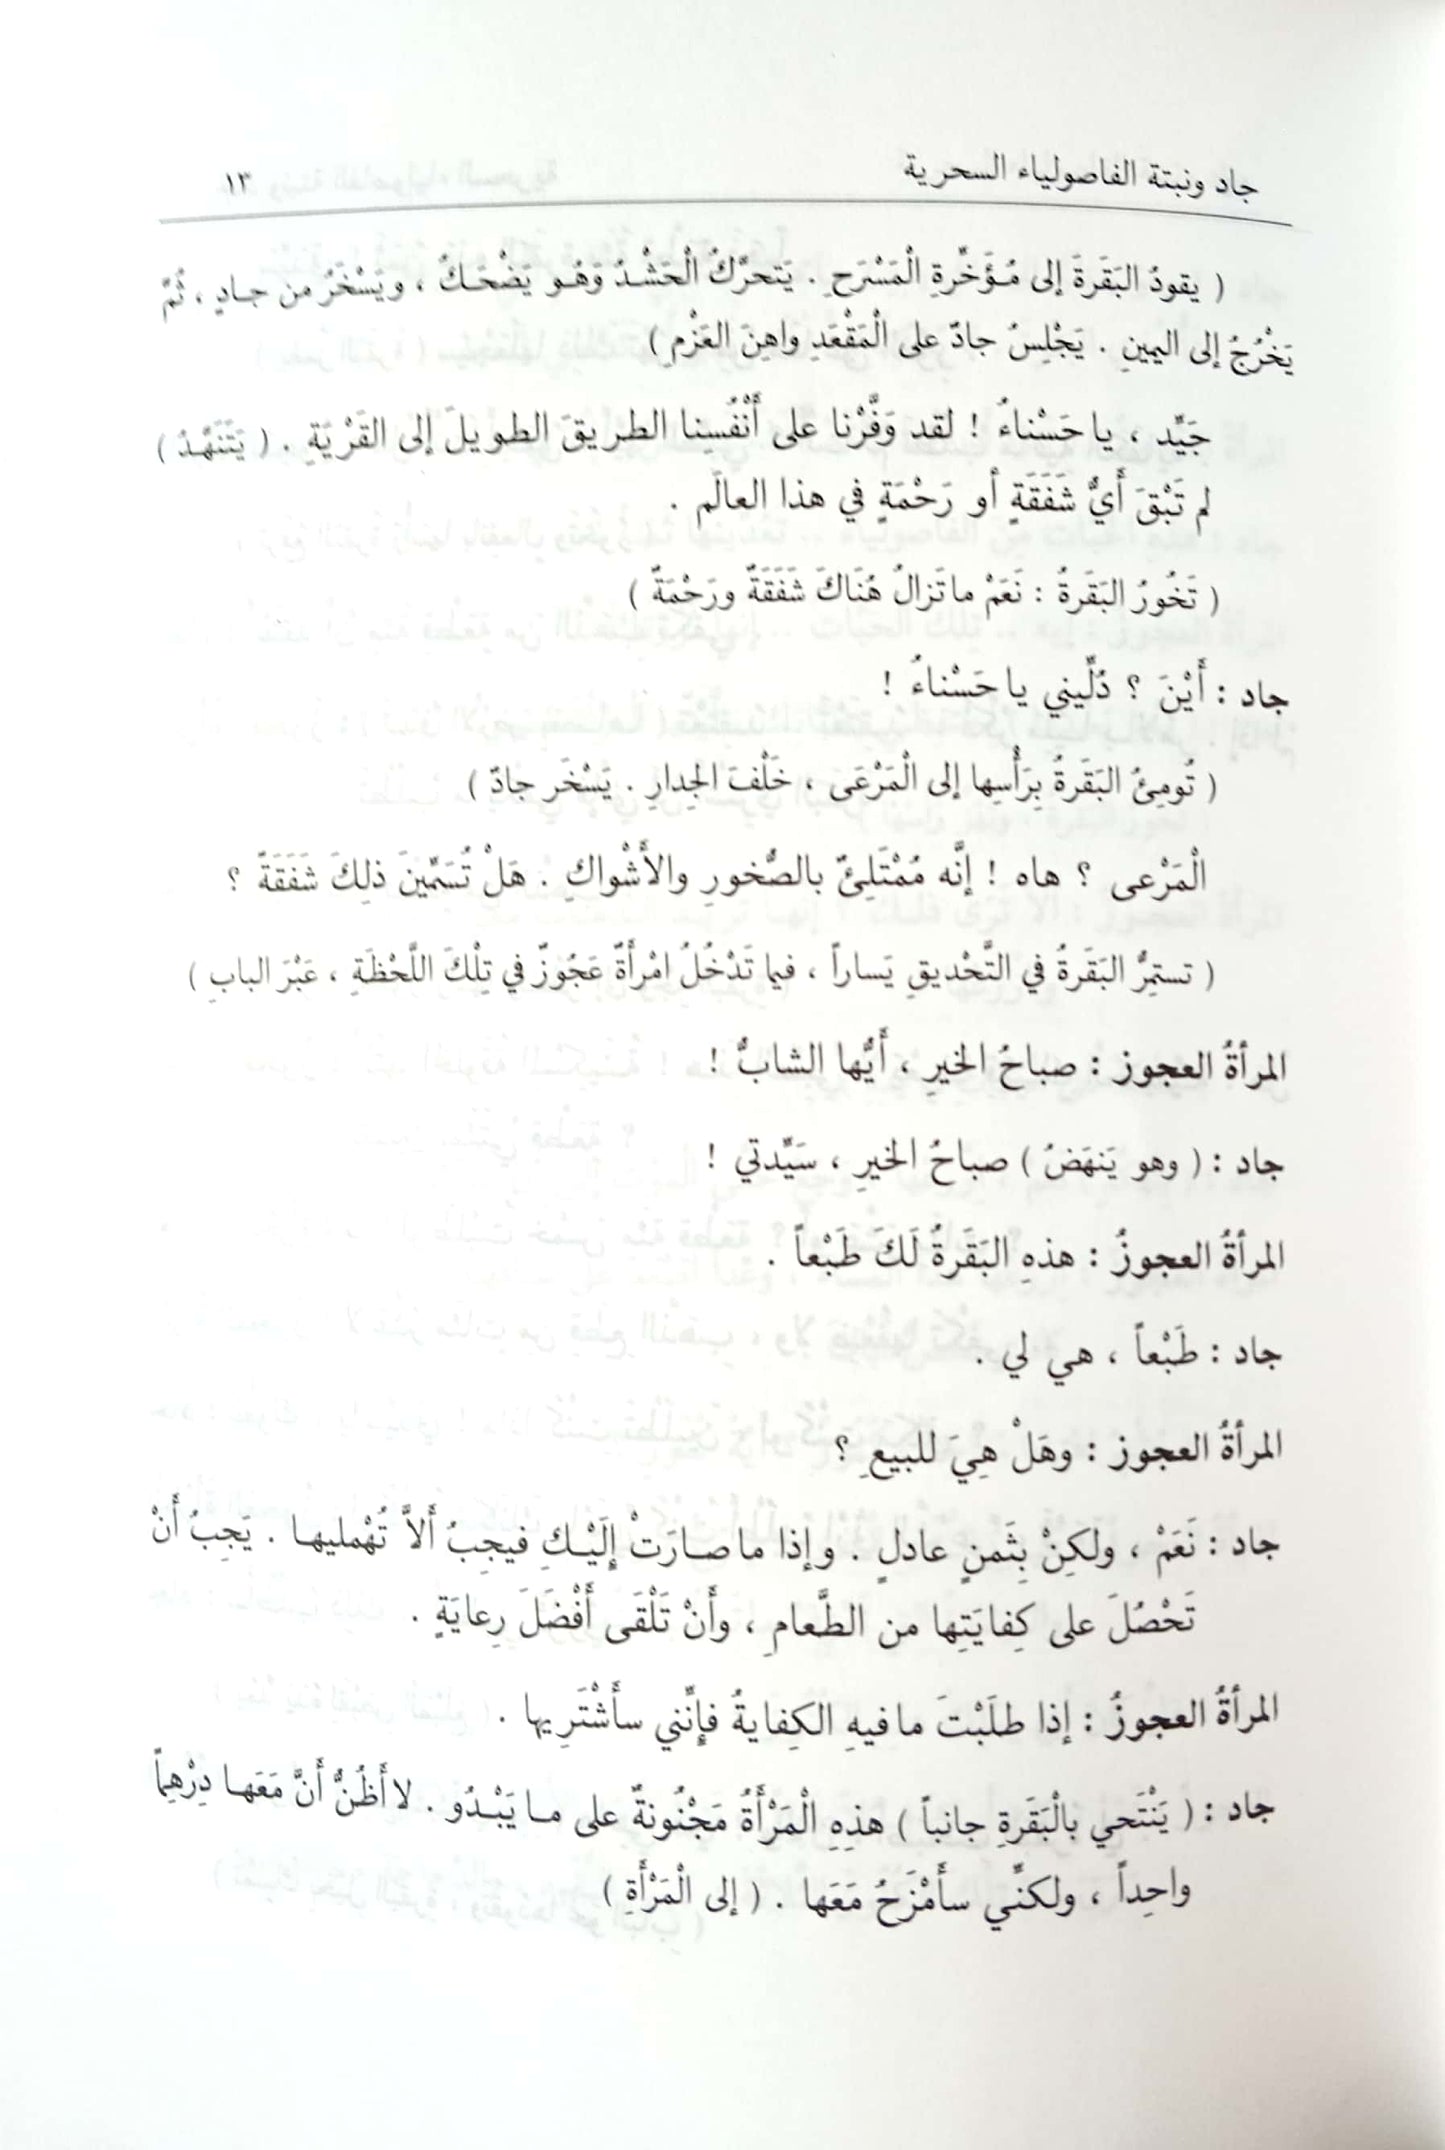 جاد ونبتة الفاصولياء السحرية ١٣
( يقودُ البَقَرةَ إلى مُؤَخِّرةِ الْمَسْرَحِ . يَتحرَّكُ الْحَشْدُ وَهُو يَضْحَكُ ، ويَسْخَرُ من جادٍ ، ثُمَّ
يَخْرُجُ إلى اليمينِ . يَجْلِسُ جادٌ على الْمَقْعَدِ واهِنَ العَزْمِ )
جَيِّد ، يا حَسْناءُ ! لقد وَفَّرْنا على أَنْفُسِنا الطريقَ الطويلَ إلى القَرْيَةِ . ( يَتَنَهَّدُ )
لم تَبْقَ أَيُّ شَفَقَةٍ أو رَحْمَةٍ في هذا العالَم .
( تَخُورُ البَقَرةُ : نَعَمْ ما تَزالُ هُنَاكَ شَفَقَةٌ ورَحْمَةٌ )
جاد : أَيْنَ ؟ دُلِّيني يا حَسْناءُ !
( تُومِئُ البَقَرةُ بِرَأْسِها إلى الْمَرْعَى ، خَلْفَ الجِدارِ . يَسْخَر جادٌ )
الْمَرْعى ؟ هاه ! إنَّه مُمْتَلِئٌ بالصُّخورِ والأَشْواكِ . هَلْ تُسَمِّينَ ذلِكَ شَفَقَةً ؟
( تستمِرُّ البَقَرةُ في التَّحْديقِ يَساراً ، فيما تَدْخُلُ امْرأَةٌ عَجُوزٌ في تِلْكَ اللَّحْظَةِ ، عَبْرَ البابِ )
المرأةُ العجوز : صباحُ الخيرِ ، أَيُّها الشابُّ !
جاد : ( وهو يَنهَضُ ) صباحُ الخيرِ ، سَيِّدتي !
المرأةُ العجوزُ : هذهِ البَقَرةُ لَكَ طَبْعاً .
جاد : طَبْعاً ، هي لي .
المرأةُ العجوز : وهَلْ هِيَ للبيعِ ؟
جاد : نَعَمْ ، ولكِنْ بِثَمنٍ عادلٍ . وإذا ما صارَتْ إِلَيْكِ فيجِبُ أَلاَّ تُهْمليها . يَجِبُ أَنْ
تَحْصُلَ على كِفايَتِها من الطَّعامِ ، وأَنْ تَلْقَى أَفْضَلَ رِعايَةٍ .
المرأةُ العجوزُ : إذا طلَبْتَ ما فيهِ الكِفايةُ فإنَّني سأَشْتَرِيها .
جاد : ( يَنْتَحي بالْبَقَرةِ جانباً ) هذِهِ الْمَرْأَةُ مَجْنُونةٌ على ما يَبْدُو . لا أَظُنُّ أَنَّ مَعَها دِرْهماً
واحِداً ، ولكنِّي سأَمْزَحُ مَعَها . ( إلى الْمَرْأَةِ )